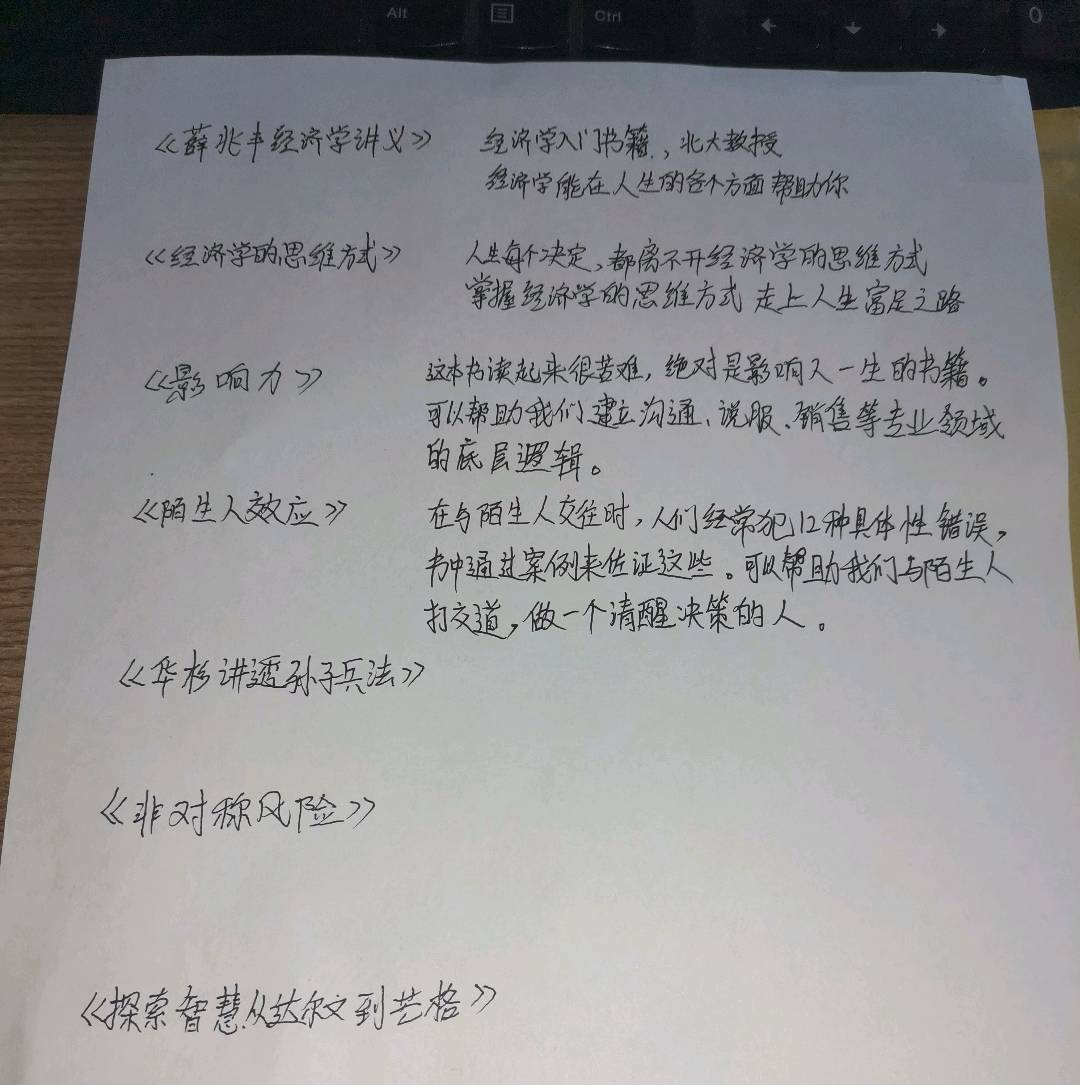 Alt
Ctrl
0
《薛兆丰经济学讲义》 经济学入门书籍,北大教授
经济学能在人生的各个方面帮助你
《经济学的思维方式》 人生每个决定,都离不开经济学的思维方式
掌握经济学的思维方式 走上人生富足之路
《影响力》 这本书读起来很苦难,绝对是影响人一生的书籍。
可以帮助我们建立沟通、说服、销售等专业领域
的底层逻辑。
《陌生人效应》 在与陌生人交往时,人们经常犯12种具体性错误,
书中通过案例来佐证这些。可以帮助我们与陌生人
打交道,做一个清醒决策的人。
《华杉讲透孙子兵法》
《非对称风险》
《探索智慧从达尔文到芒格》